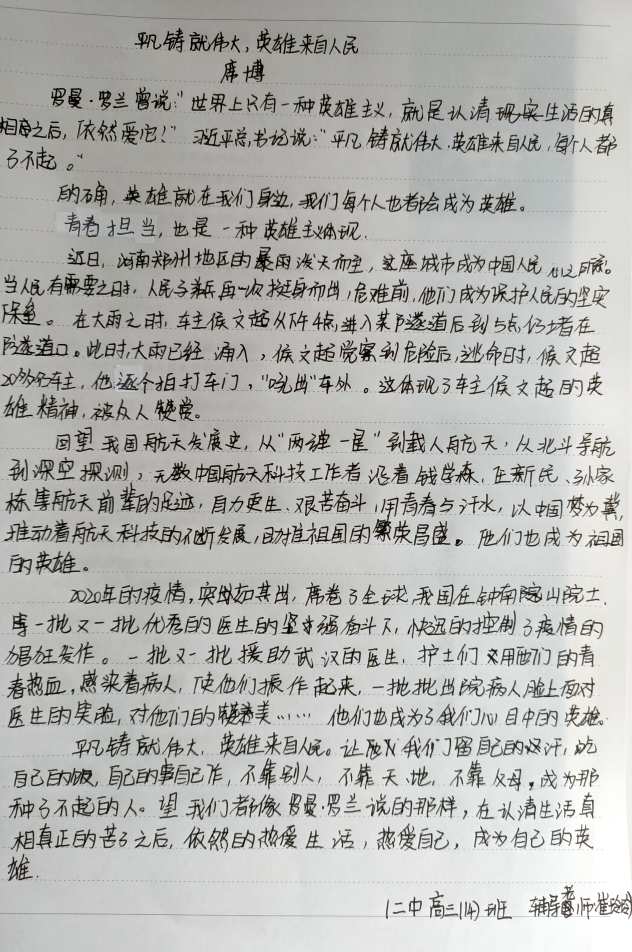 平凡铸就伟大,英雄来自人民
席博
罗曼·罗兰曾说:"世界上只有一种英雄主义,就是认清现实生活的真
相之后,依然爱它!" 习近平总书记说:"平凡铸就伟大,英雄来自人民,每个人都
了不起。"
的确,英雄就在我们身边,我们每个人也都会成为英雄。
青春担当,也是一种英雄主义体现.
近日,河南郑州地区的暴雨泼天而至,这座城市成为中国人民
当人民有需要之时,人民子弟兵再一次挺身而出,危难前,他们成为保护人民的坚实
保垒。在大雨之时,车主侯文超从下午4点,进入某隧道后到5点仍堵在
隧道口。此时,大雨已经涌入,侯文超觉察到危险后,逃命时,侯文超
20多分车主,他逐个拍打车门,"吼出"车外。这体现了车主侯文超的英
雄精神,被众人赞赏。
回望我国航天发展史,从"两弹一星"到载人航天,从北斗导航
到深空探测,无数中国航天科技工作者沿着钱学森、任新民、孙家
栋等航天前辈的足迹,自力更生、艰苦奋斗,用青春与汗水,以中国梦为翼,
推动着航天科技的不断发展,助推祖国的繁荣昌盛。他们也成为祖国
的英雄。
2020年的疫情,突如其出,席卷了全球,我国在钟南山院士.
等一批又一批优秀的医生的坚强奋斗下,快迅的控制了疫情的
猖狂发作。一批又一批援助武汉的医生、护士们用他们的青
春热血,感染着病人,使他们振作起来,一批批出院病人脸上面对
医生的笑脸,对他们的赞美…… 他们也成为了我们心目中的英雄.
平凡铸就伟大,英雄来自人民。让我们留自己的汗,吃
自己的饭,自己的事自己作,不靠别人,不靠天、地,不靠父母,成为那
种了不起的人。望我们都像罗曼·罗兰说的那样,在认清生活真
相真正的苦了之后,依然的热爱生活,热爱自己,成为自己的英
雄.
(二中 高三(14)班 辅导老师崔玲